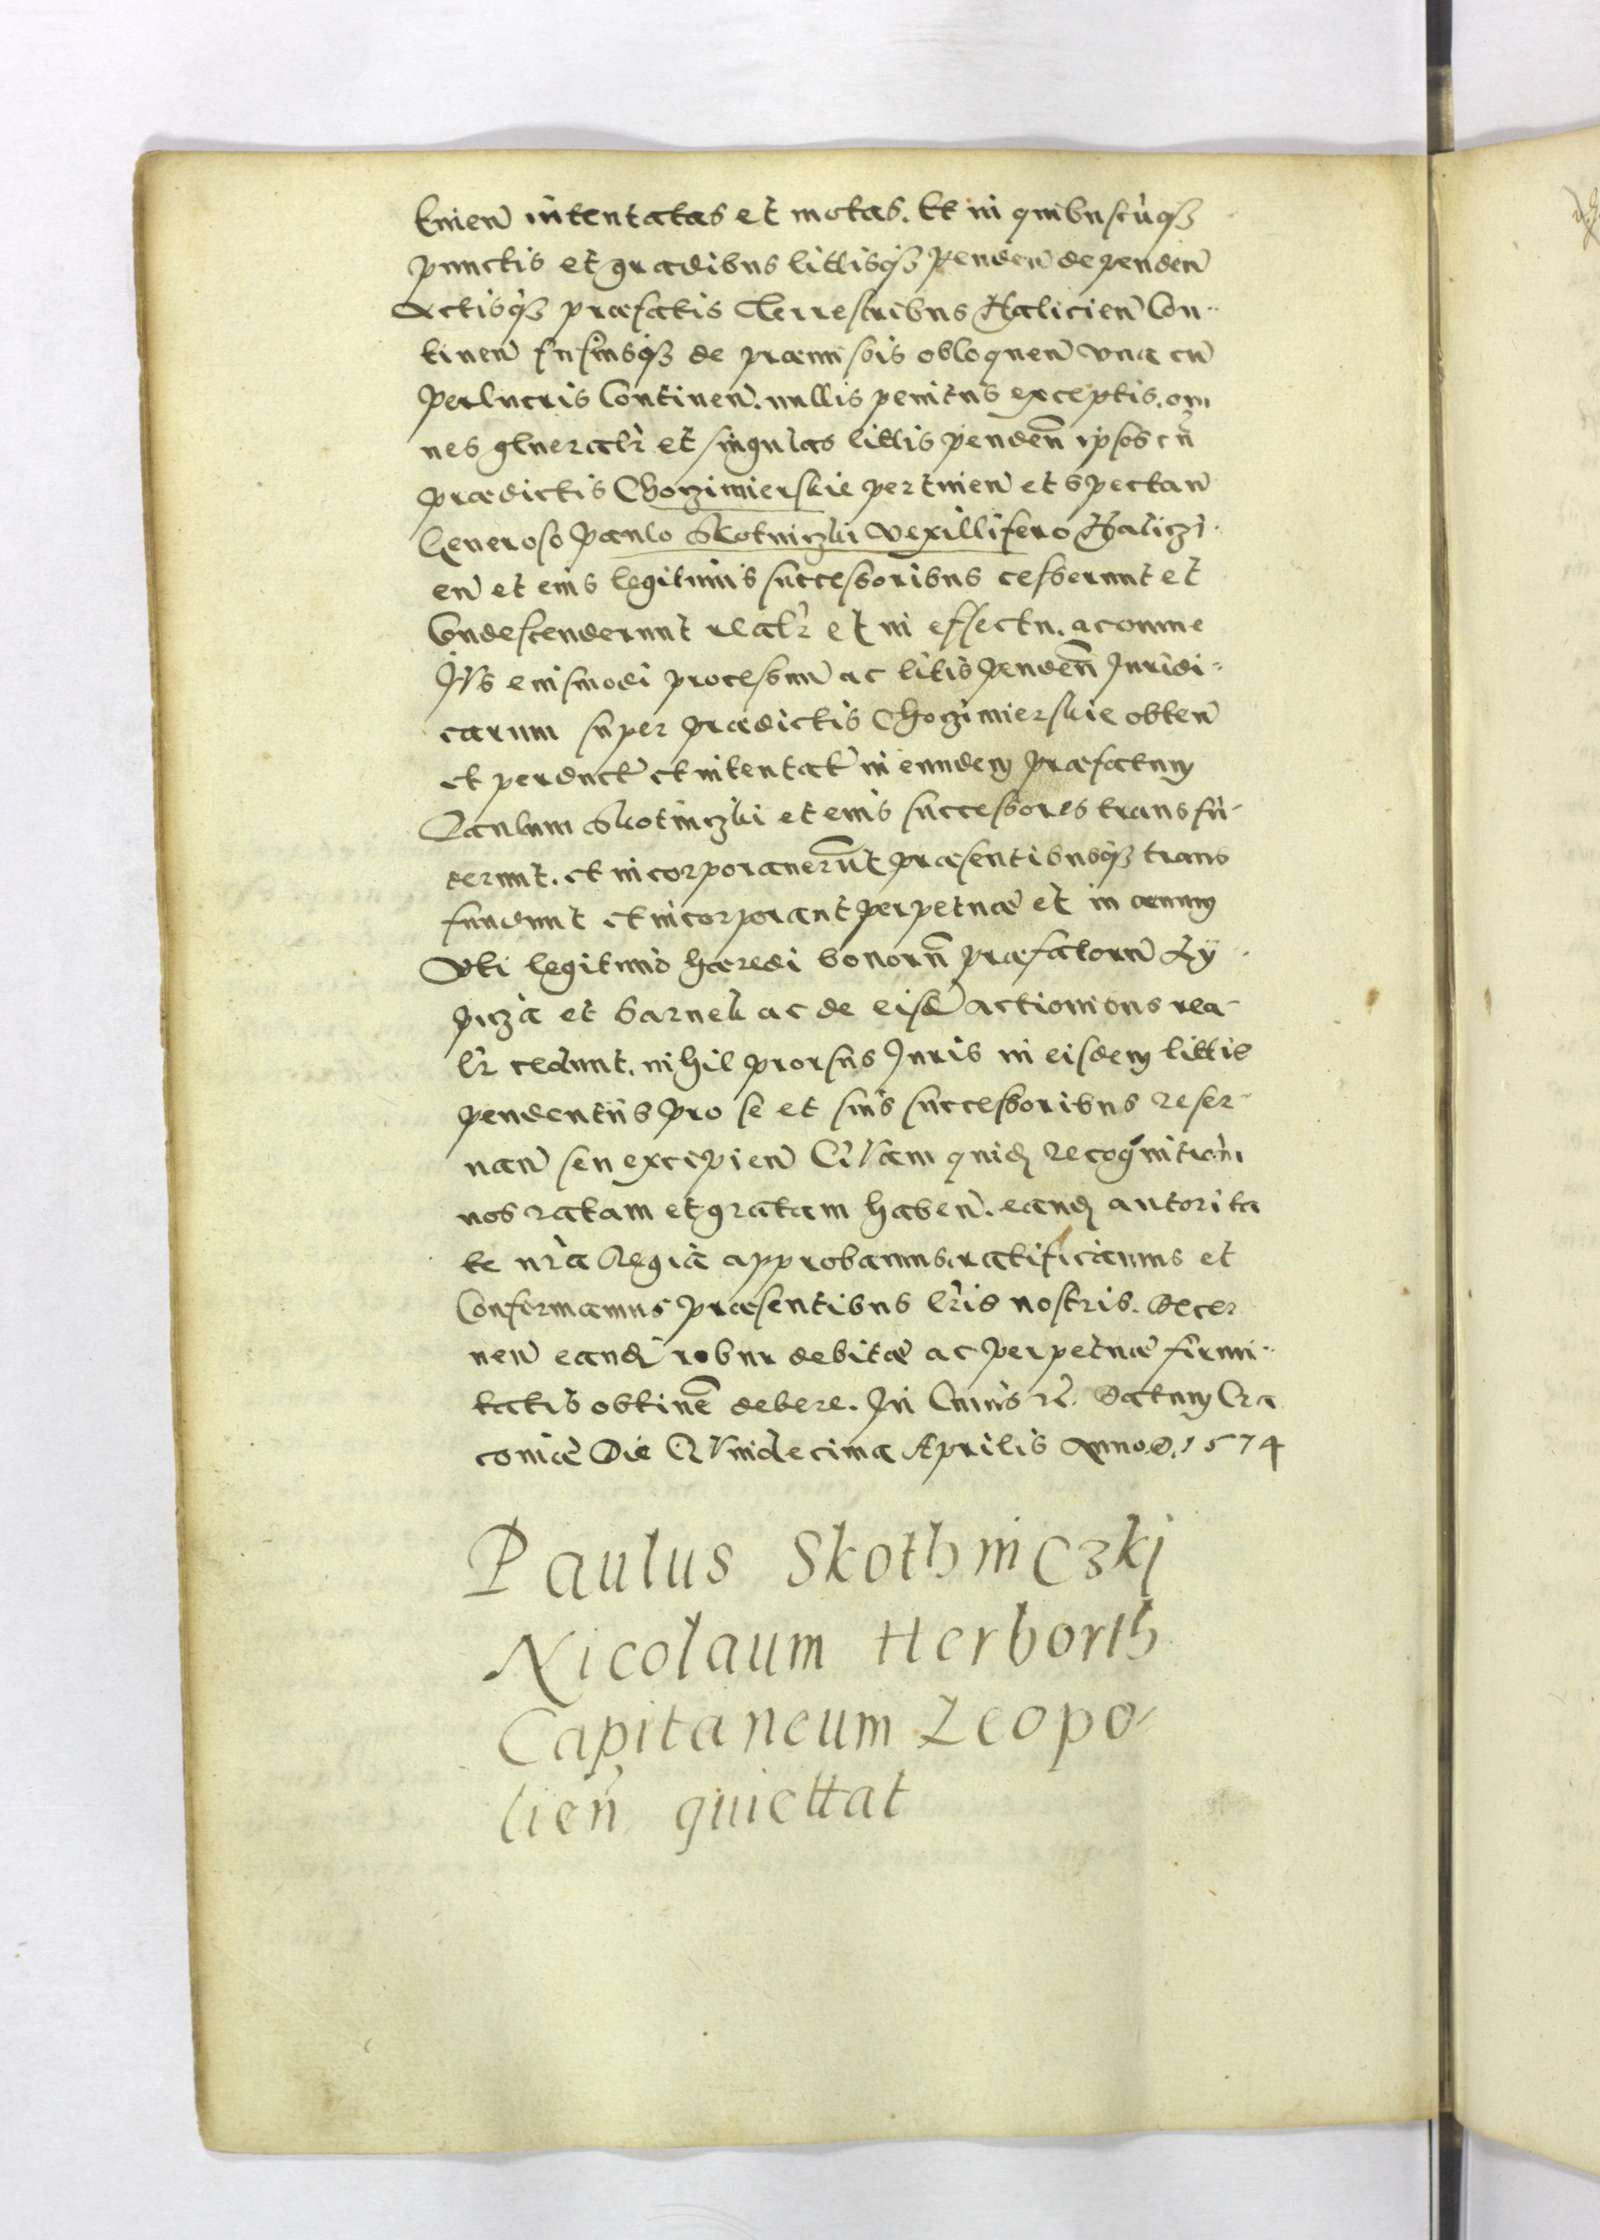 tnien̄ intentatas et motas. Et in quibuscūqȝ
punctis et gradibus littisqȝ penden̄ dependen̄
Actisqȝ præfatis Terrestribus Halicien̄ Con-
tinen̄ fusiusqȝ de præmissis obloquen̄ vna cū
perlucris Continen̄. nullis penitus exceptis. om
nes generalr̄ et singulas littis penden̄ ipsos cū
prædictis Choczimierskie pertinen̄ et spectan̄
Generoso Paulo Skotniczki Vexillifero Haliczi-
en̄ et eius legitimis successoribus cesserunt et
Condescenderunt realr̄ et in effectu. ac omne
JVs eiusmodi processuū ac litis penden̄ Juridi-
carum super prædictis Choczimierskie obten̄
et perduct̄ et intentat̄ in eundem præfatum
Paulum Skotniczki et eius successores transfu-
derunt. et incorporauerūt præsentibusqȝ trans
fundunt et incorporant perpetuæ et in æuum
Vti legitimo hæredi bonorū præfatorū Ly
picza et Sarnek ac de eisd̄ actionibus rea-
lr̄ cedunt. nihil prorsus Juris in eisdem littis
pendentijs pro se et suis successoribus reser-
uan̄ seu excipien̄ QVam quid̨ recognition̄
nos ratam et gratam haben̄. eand̨ autorita
te nr̄a Regia approbamus ratificamus et
Confirmamus præsentibus lr̄is nostris. Decer
nen̄ eand̨ robur debitæ ac perpetuæ firmi-
tatis obtinē debere. In Cuius rȩ̄. Datum Cra
couiæ Die QVindecima Aprilis Anno D. 1574
Paulus Skothniczkj
Nicolaum Herborth
Capitaneum Leopo-
lien̄ quiettat